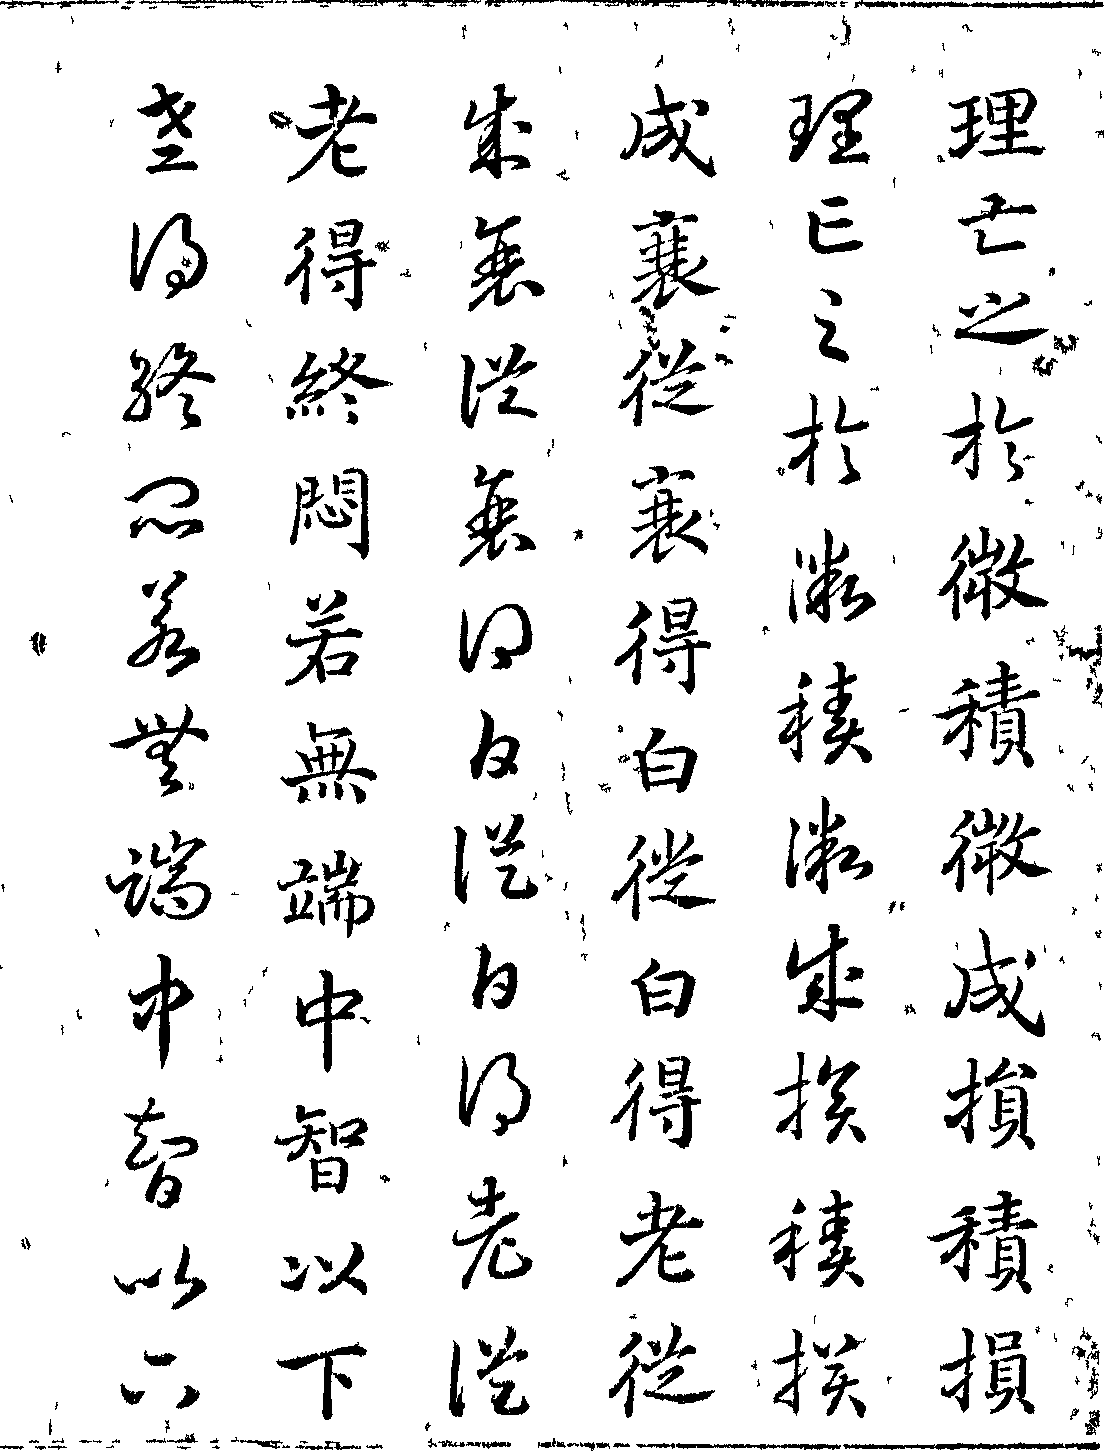 理亡之於微積微成損積損
理亡之於微積微成損積損
成衰從衰得白從白得老從
成衰從衰得白從白得老從
老得終悶若無端中智以下
老得終悶若無端中智以下